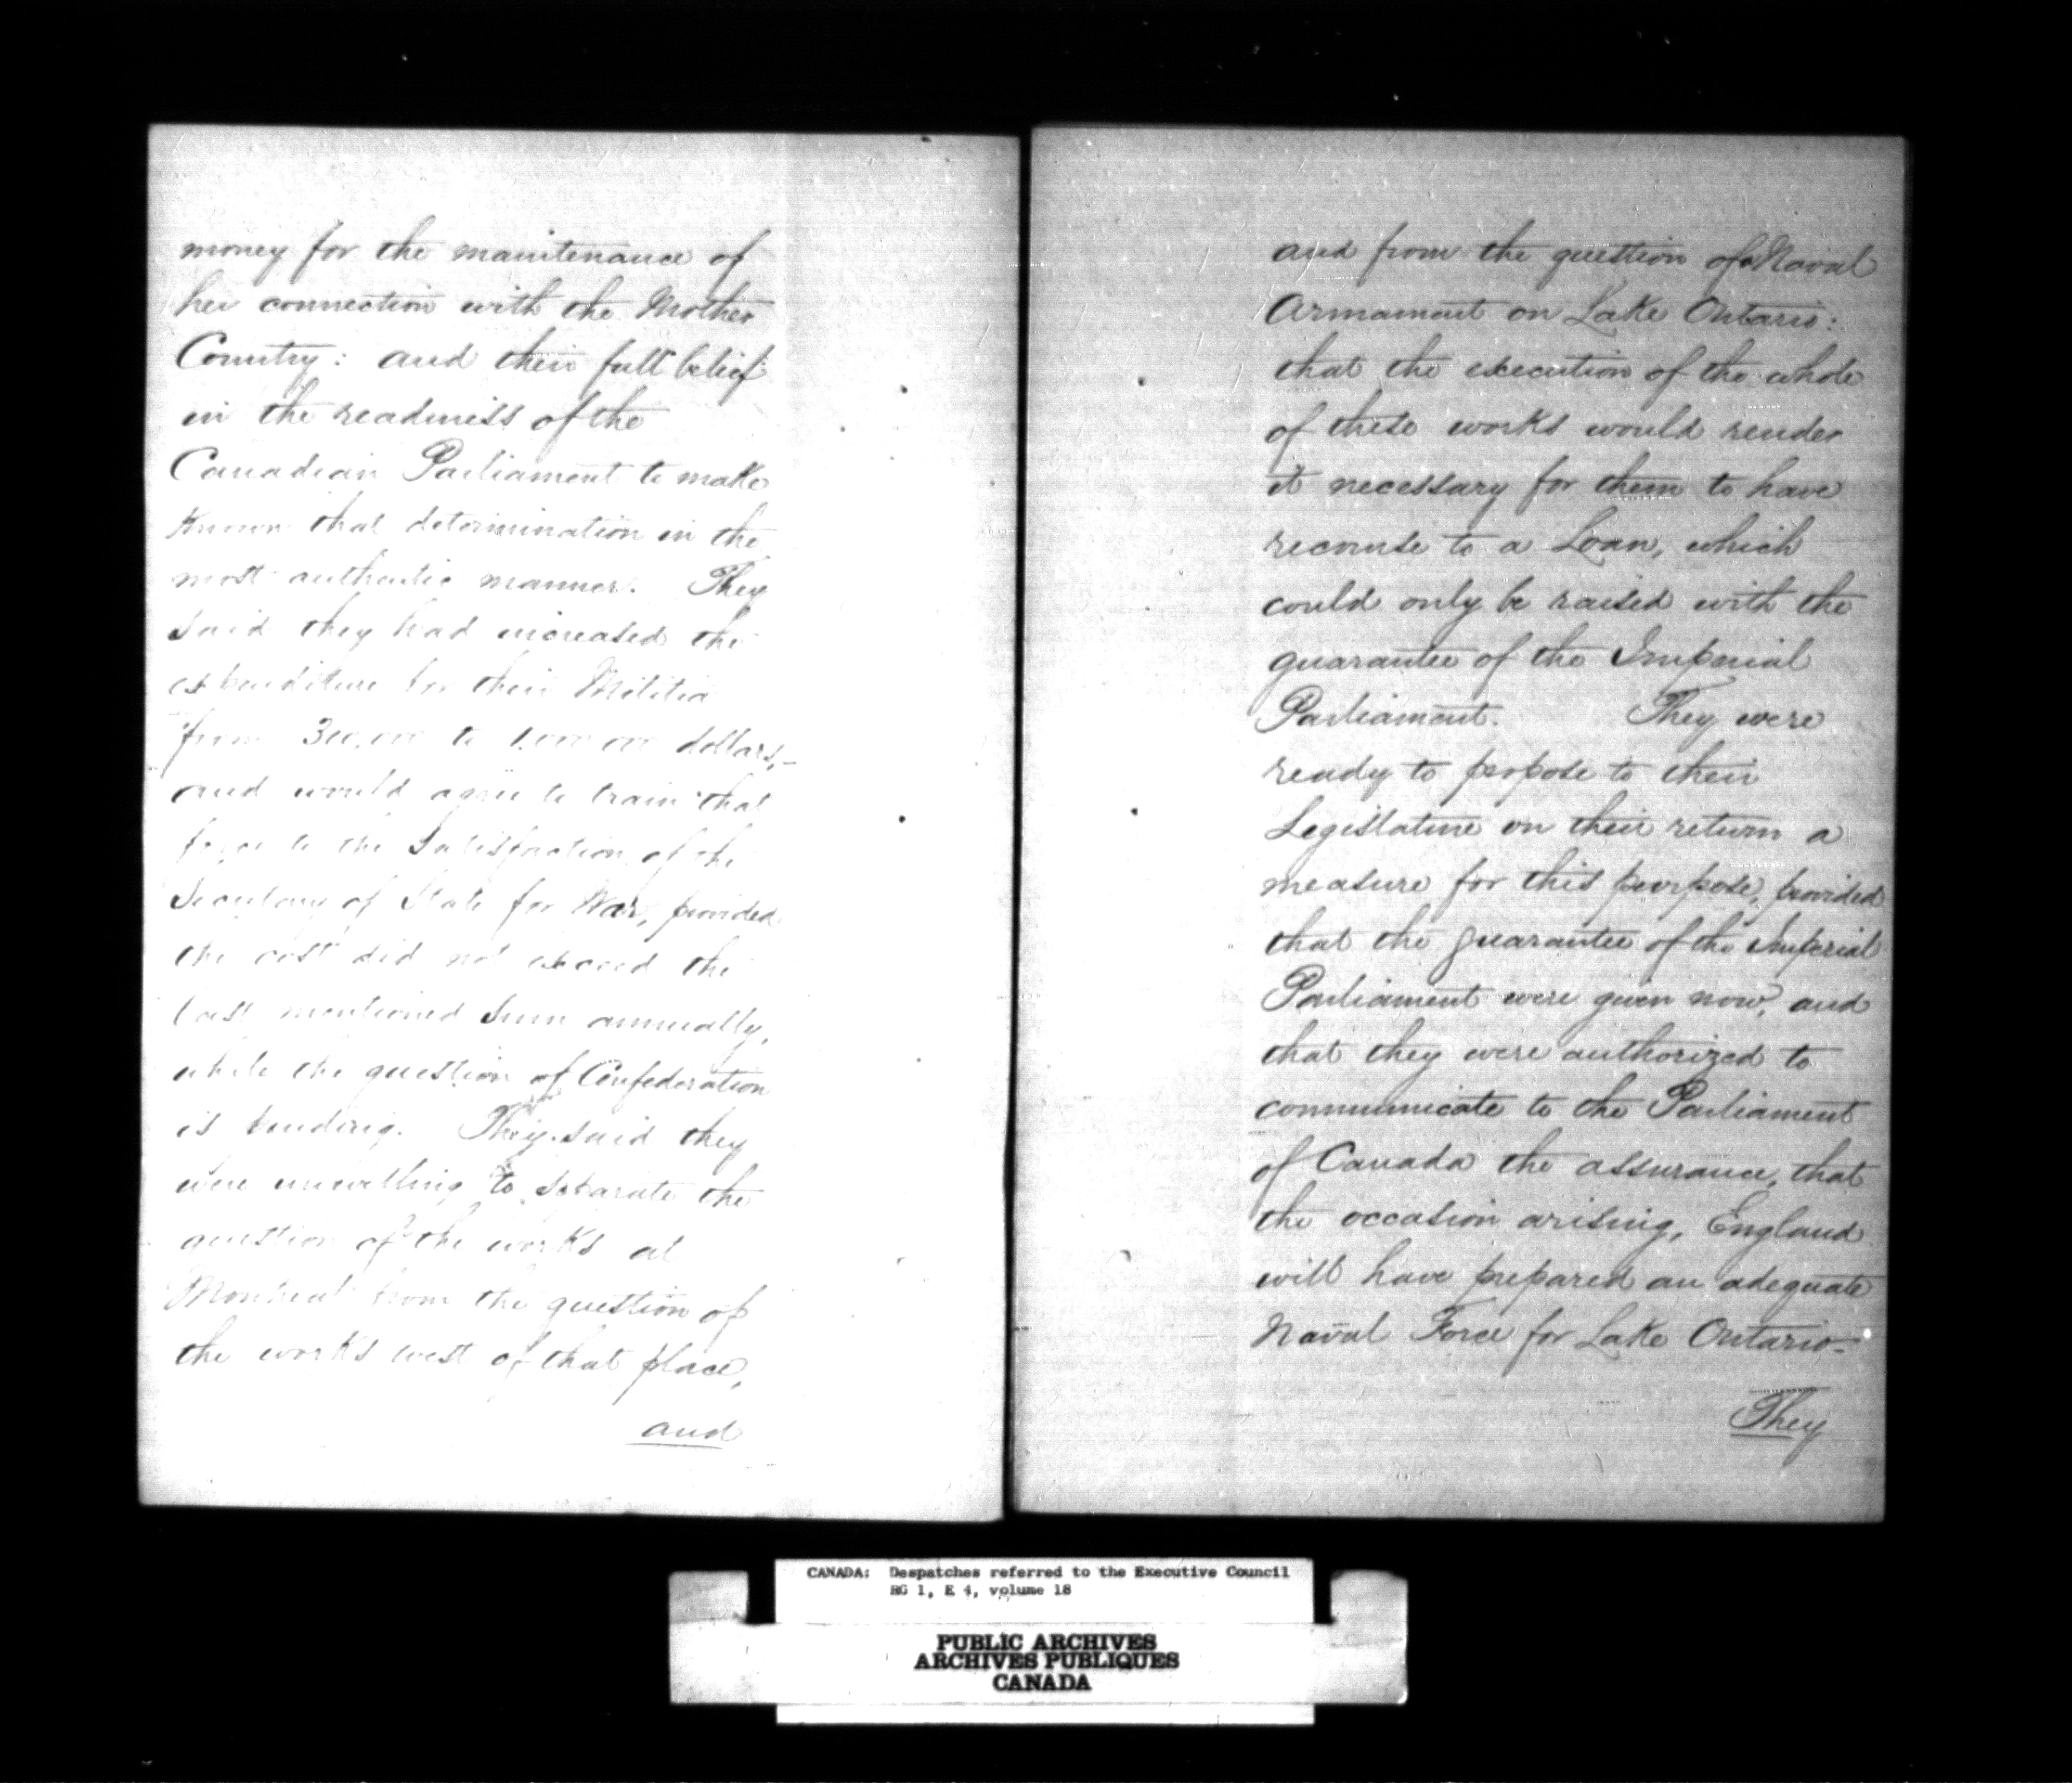 money for the maintenance of
her connection with the Mother
Country: and their full belief
in the readiness of the
Canadian Parliament to make
known that determination in the
most authentic manner. They
said they had increased the
expenditure for their Militia
from 300,000 to 1,000,000 dollars,-
and would agree to train that
force to the Satisfaction of the
Secretary of State for War, provided
the cost did not exceed the
last mentioned Sum annually,
while the question of Confederation
is pending. They said they
were unwilling to separate the
question of the works at
Montreal from the question of
the works west of that place,
and
and from the question of Naval
Armament on Lake Ontario:
that the execution of the whole
of these works would render
it necessary for them to have
recourse to a Loan, which
could only be raised with the
guarantee of the Imperial
Parliament. They were
ready to propose to their
Legislature on their return a
measure for this purpose, provided
that the guarantee of the Imperial
Parliament were given now, and
that they were authorized to
communicate to the Parliament
of Canada the assurance, that
the occasion arising, England
will have prepared an adequate
Naval Force for Lake Ontario-
They
CANADA: Despatches referred to the Executive Council
RG 1, E 4, volume 18
PUBLIC ARCHIVES
ARCHIVES PUBLIQUES
CANADA